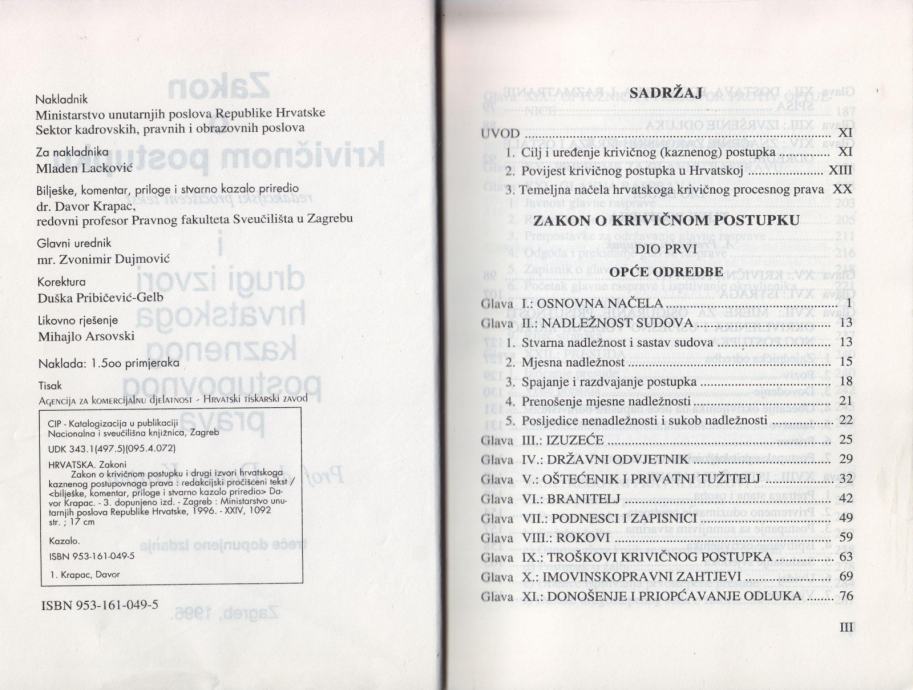 Nakladnik
Ministarstvo unutarnjih poslova Republike Hrvatske
Sektor kadrovskih, pravnih i obrazovnih poslova
Za nakladnika
Mladen Lacković
Bilješke, komentar, priloge i stvarno kazalo priredio
dr. Davor Krapac,
redovni profesor Pravnog fakulteta Sveučilišta u Zagrebu
Glavni urednik
mr. Zvonimir Dujmović
Korektura
Duška Pribičević-Gelb
Likovno rješenje
Mihajlo Arsovski
Naklada: 1.5oo primjeraka
Tisak
Agencija za komercijalnu djelatnost - Hrvatski tiskarski zavod
CIP - Katalogizacija u publikaciji
Nacionalna i sveučilišna knjižnica, Zagreb
UDK 343.1(497.5)(095.4.072)
HRVATSKA. Zakoni
Zakon o krivičnom postupku i drugi izvori hrvatskoga
kaznenog postupovnoga prava : redakcijski pročišćeni tekst /
<bilješke, komentar, priloge i stvarno kazalo priredio> Da-
vor Krapac. - 3. dopunjeno izd. - Zagreb : Ministarstvo unu-
tarnjih poslova Republike Hrvatske, 1996. - XXIV, 1092
str. ; 17 cm
Kazalo.
ISBN 953-161-049-5
1. Krapac, Davor
ISBN 953-161-049-5
SADRŽAJ
UVOD ........ XI
1. Cilj i uređenje krivičnog (kaznenog) postupka ........ XI
2. Povijest krivičnog postupka u Hrvatskoj ........ XIII
3. Temeljna načela hrvatskoga krivičnog procesnog prava XX
ZAKON O KRIVIČNOM POSTUPKU
DIO PRVI
OPĆE ODREDBE
Glava I.: OSNOVNA NAČELA ........ 1
Glava II.: NADLEŽNOST SUDOVA ........ 13
1. Stvarna nadležnost i sastav sudova ........ 13
2. Mjesna nadležnost ........ 15
3. Spajanje i razdvajanje postupka ........ 18
4. Prenošenje mjesne nadležnosti ........ 21
5. Posljedice nenadležnosti i sukob nadležnosti ........ 22
Glava III.: IZUZEĆE ........ 25
Glava IV.: DRŽAVNI ODVJETNIK ........ 29
Glava V.: OŠTEĆENIK I PRIVATNI TUŽITELJ ........ 32
Glava VI.: BRANITELJ ........ 42
Glava VII.: PODNESCI I ZAPISNICI ........ 49
Glava VIII.: ROKOVI ........ 59
Glava IX.: TROŠKOVI KRIVIČNOG POSTUPKA ........ 63
Glava X.: IMOVINSKOPRAVNI ZAHTJEVI ........ 69
Glava XI.: DONOŠENJE I PRIOPĆAVANJE ODLUKA ........ 76
III